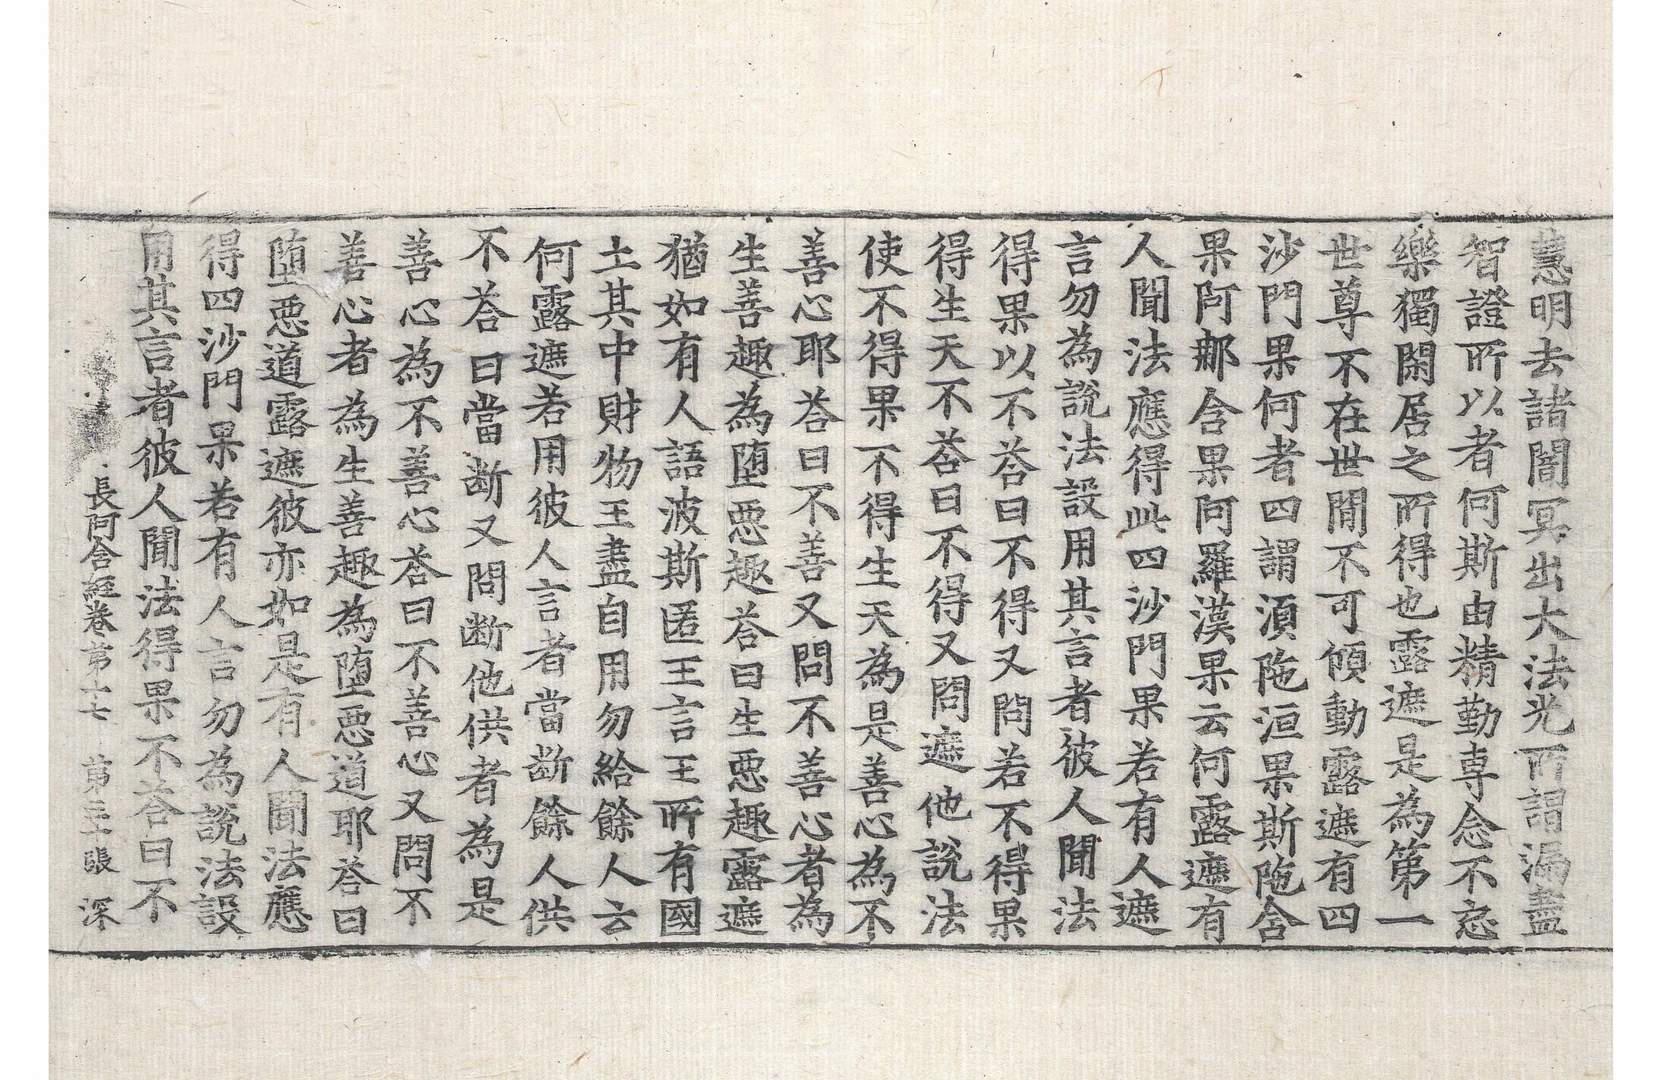 慧明去諸闇冥出大法光所謂漏盡
智證所以者何斯由精勤専念不忘
樂獨閑居之所得也露遮是為第一
世尊不在世閒不可傾動露遮有四
沙門果何者四謂湏陁洹果斯陁含
果阿那含果阿羅漢果云何露遮有
人聞法應得此四沙門果若有人遮
言勿為說法設用其言者彼人聞法
得果以不荅曰不得又問若不得果
得生天不荅曰不得又問遮他說法
使不得果不得生天為是善心為不
善心耶荅曰不善又問不善心者為
生善趣為堕惡趣荅曰生惡趣露遮
猶如有人語波斯匿王言王所有國
土其中財物王盡自用勿給餘人云
何露遮若用彼人言者當斷餘人供
不荅曰當断又問断他供者為是
善心為不善心荅曰不善心又問不
善心者為生善趣為堕惡道耶荅曰
堕惡道露遮彼亦如是有人聞法應
得四沙門果若有人言勿為說法設
用其言者彼人聞法得果不荅曰不
長阿含經卷第十七 第三十張 深